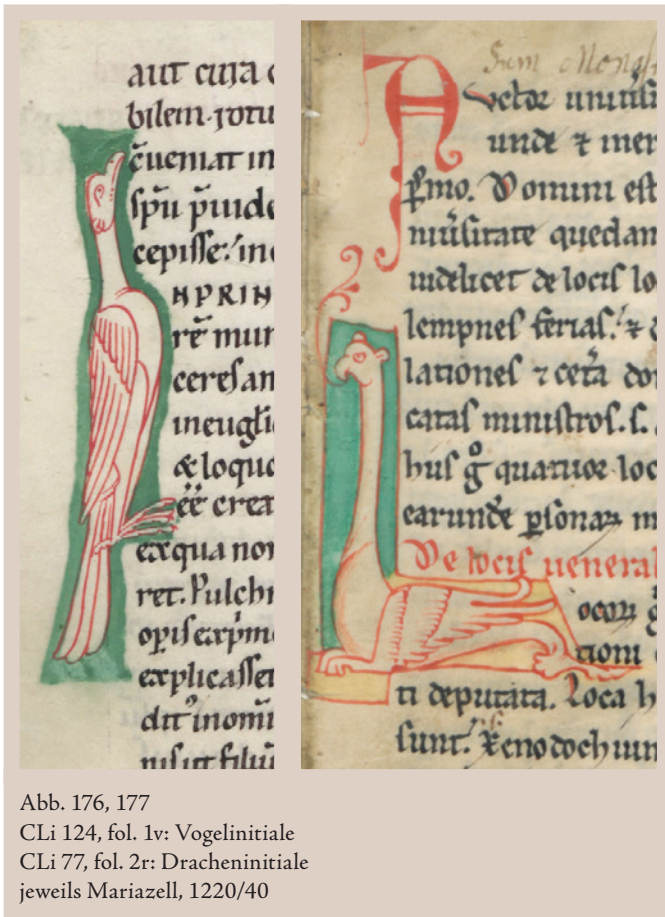 aut cura
bilem. totu
c̄ueniat in
sp̄u p̄uide
cepiſſe: in
NPRIN
rē mun
cereſ an
in
& loquc
eē crea
ex qua non
ret. Pulchr
opiſ exp̄m
explicaſſet
dit inomi
niſi ut filiū
Sum
uctor
unde ⁊ mer
ꝑmo. Domini eſt
quedam
uidelicet de lociſ lo
lempneſ feriaſ. ⁊
lationeſ ⁊ cet̄a
caſaſ miniſtroſ. ſ.
huſ g̊ quatuor loc
earundē ꝑſonaꝝ m
De lociſ uenera
locoꝝ
tioni
ti deputata. Loca h
ſunt. Xenodochium
Abb. 176, 177
CLi 124, fol. 1v: Vogelinitiale
CLi 77, fol. 2r: Dracheninitiale
jeweils Mariazell, 1220/40